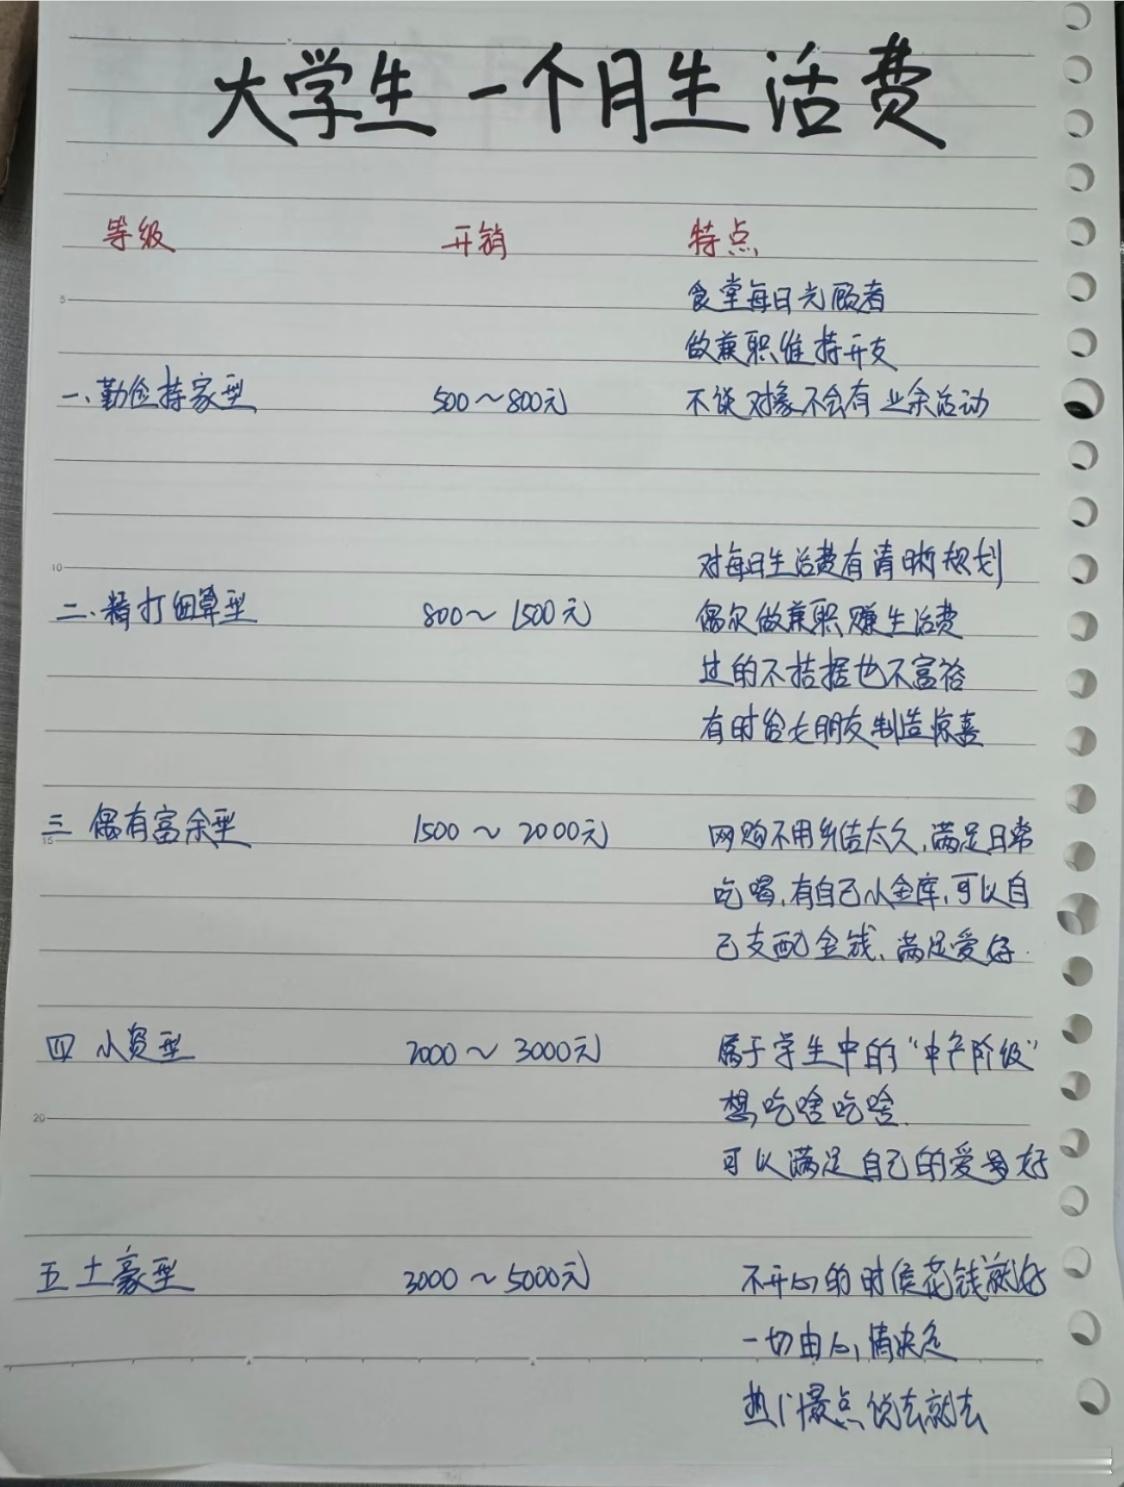 大学生一个月生活费
等级 开销 特点
食堂每日光顾者
做兼职维持开支
一、勤俭持家型 500～800元 不谈对象不会有业余活动
10
对每日生活费有清晰规划
二、精打细算型 800～1500元 偶尔做兼职赚生活费
过的不拮据也不富裕
有时给女朋友制造惊喜
三 偶有富余型 1500～2000元 网购不用纠结太久,满足日常
15
吃喝,有自己小金库,可以自
己支配金钱、满足爱好.
四 小资型 2000～3000元 属于学生中的"中产阶级"
想吃啥吃啥.
20
可以满足自己的爱好
五 土豪型 3000～5000元 不开心的时候花钱就好
一切由心情决定
热门景点说去就去